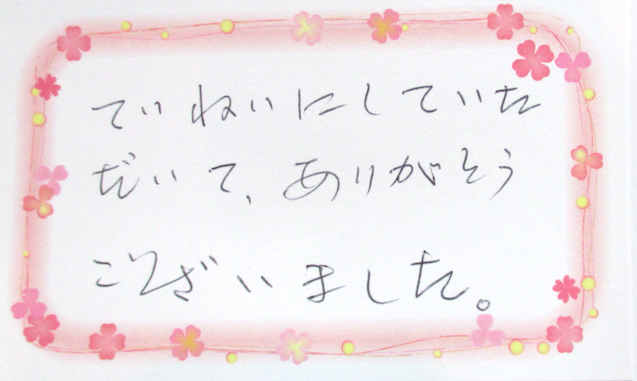 ていねいにしていた
だいて、ありがとう
ございました。